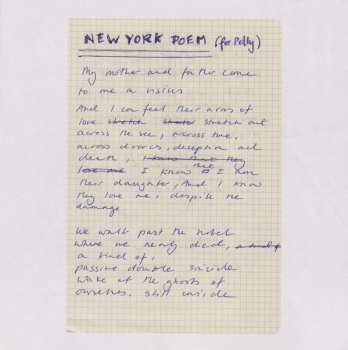 NEW YORK POEM (for Polly)
My mother and father come
to me in visions
And I can feel their arms of
love stretch stretch stretch out
across the sea, across time,
across divorce, deception and
death, I know that they
love me I know that I am
their daughter, And I know
they love me, despite the
damage
We walk past the hotel
where we nearly died,
a kind of,
passive double suicide
wake at the ghosts of
ourselves. still inside